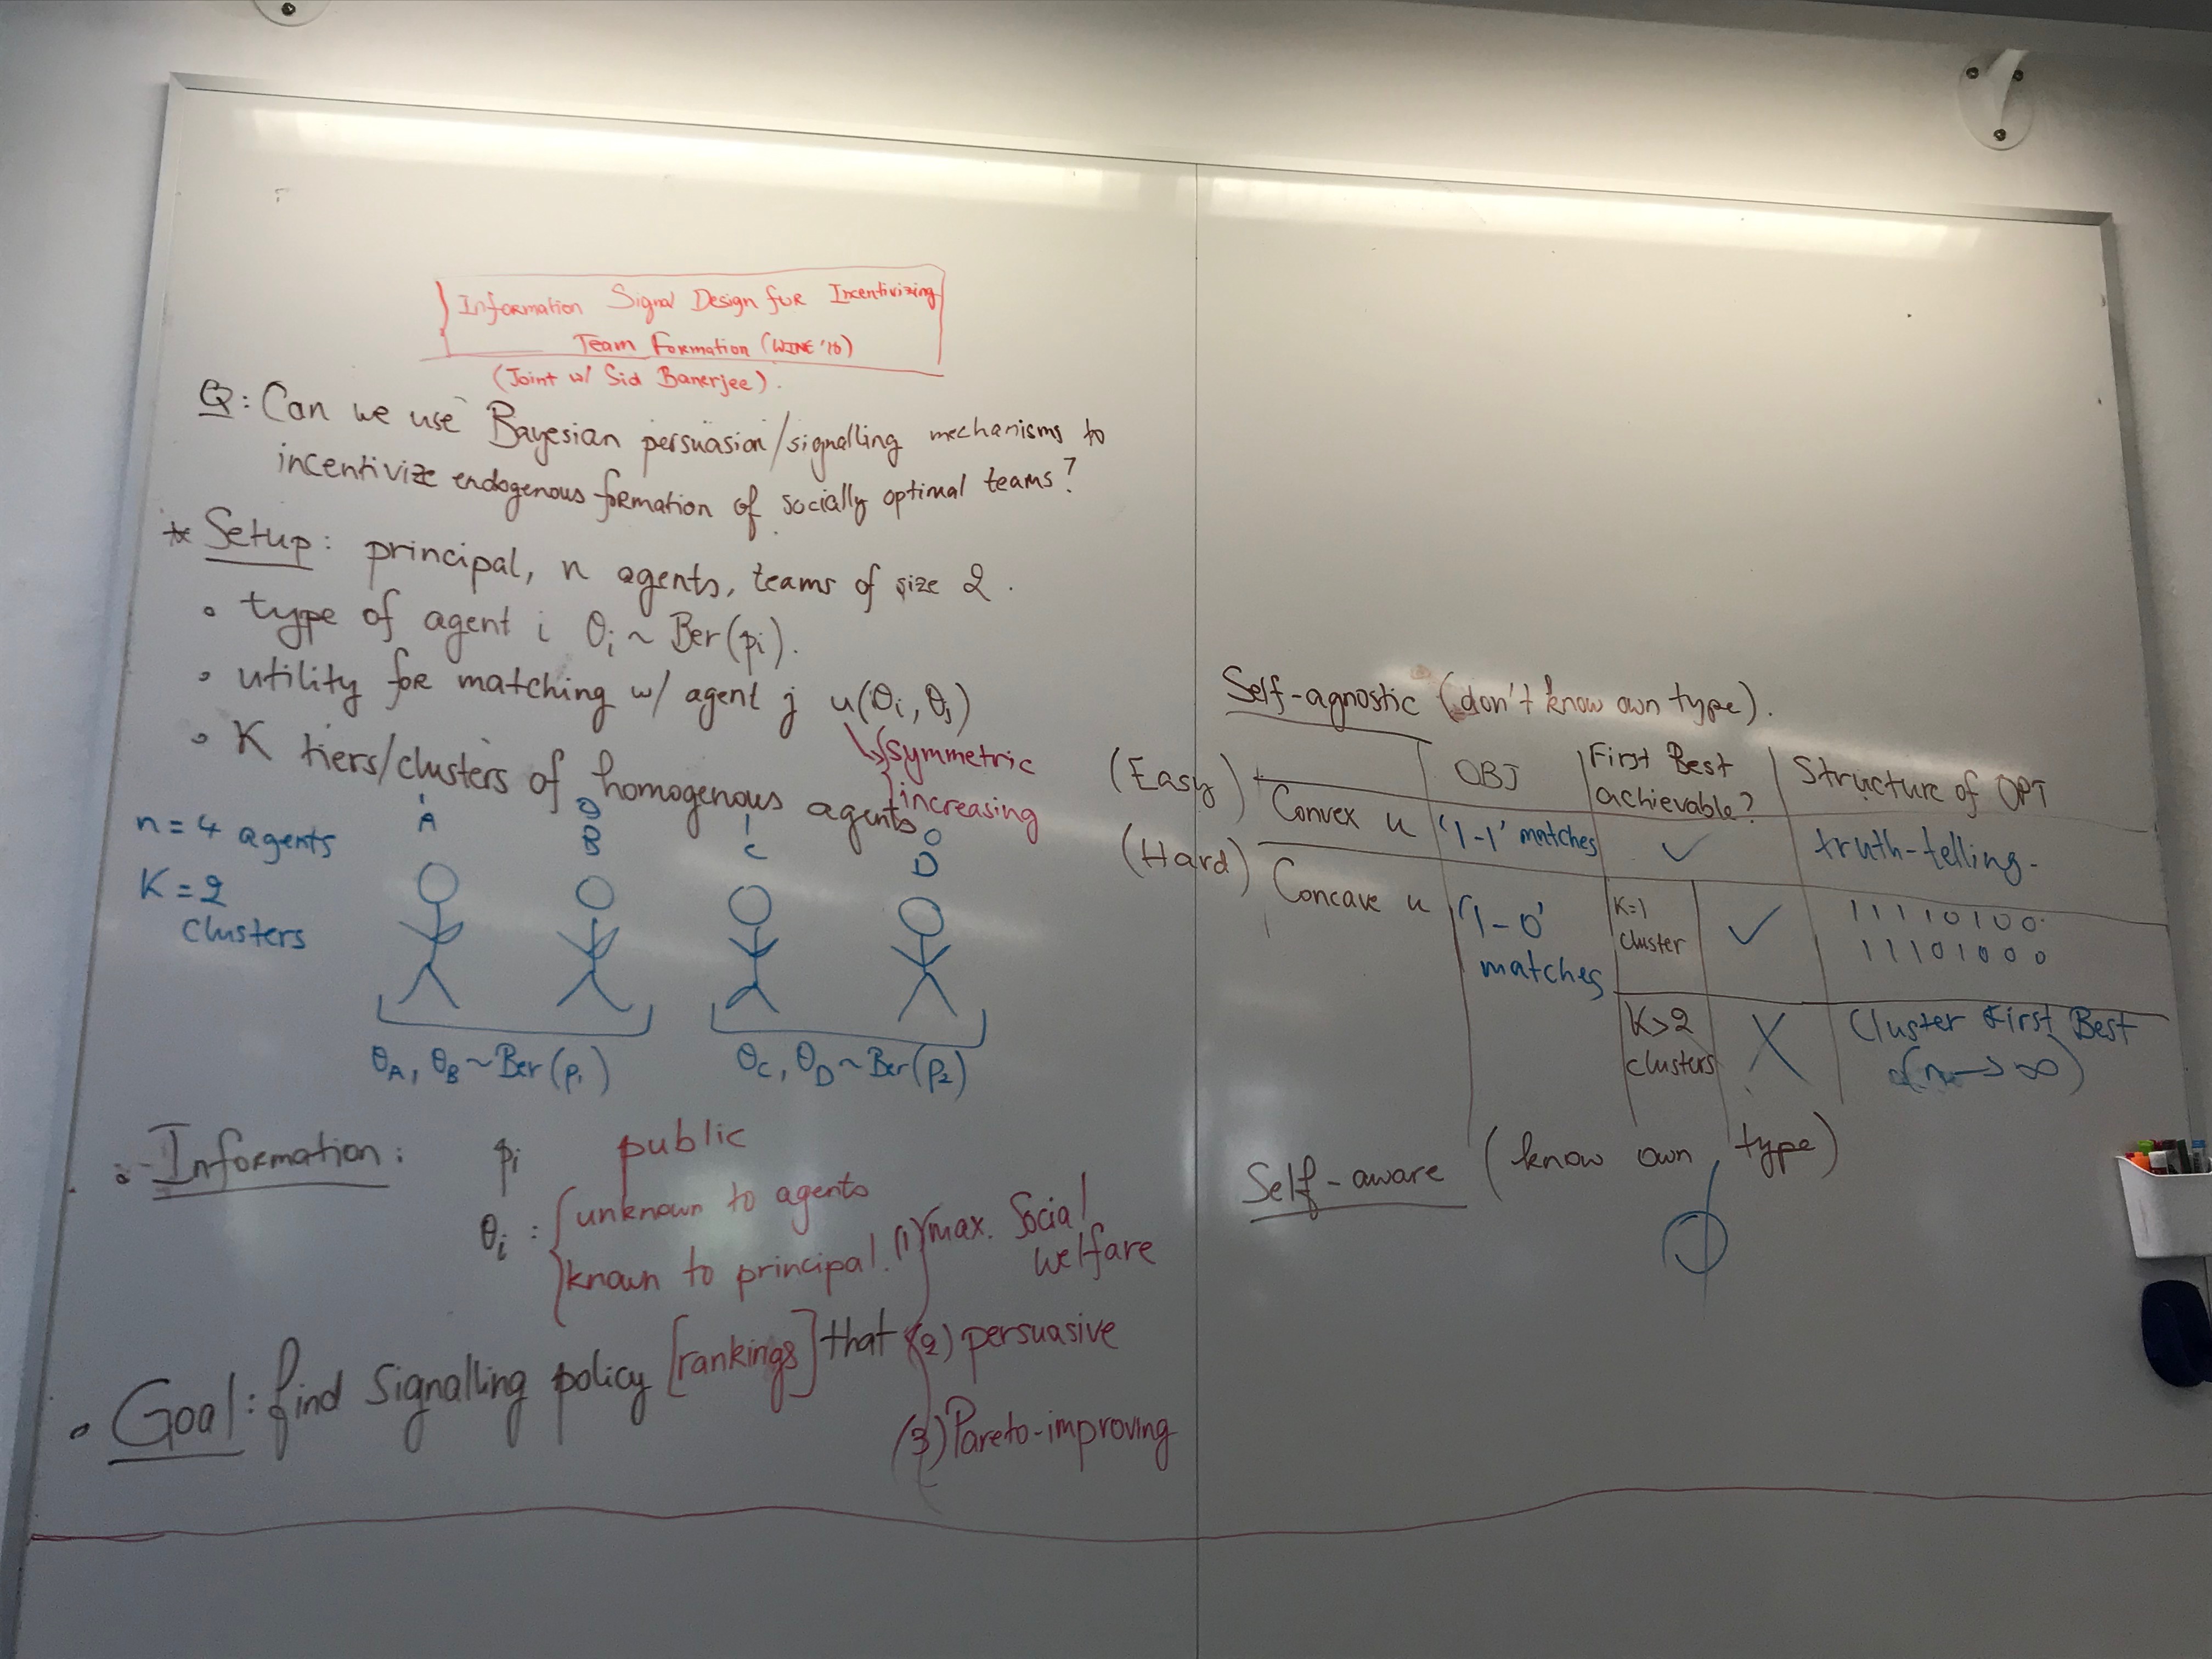 Information Signal Design for Incentivizing
Team Formation (WINE '18)
(Joint w/ Sid Banerjee).
Q: Can we use Bayesian persuasion/signalling mechanisms to
incentivize endogenous formation of socially optimal teams?
* Setup: principal, n agents, teams of size 2.
• type of agent i θi ~ Ber(pi).
• utility for matching w/ agent j u(θi, θj)
symmetric
increasing
• K tiers/clusters of homogenous agents
n = 4 agents
K = 2
clusters
1 0 1 0
A B C D
θA, θB ~ Ber(p1)
θC, θD ~ Ber(p2)
• Information: pi public
θi: { unknown to agents
known to principal.
• Goal: find signalling policy [rankings] that
(1) max. Social
welfare
(2) persuasive
(3) Pareto-improving
Self-agnostic (don't know own type).
OBJ | First Best achievable? | Structure of OPT
(Easy) Convex u | '1-1' matches | ✓ | truth-telling.
(Hard) Concave u | '1-0' matches
K=1 cluster | ✓ | 1 1 1 1 0 1 0 0
1 1 1 0 1 0 0 0
K>2 clusters | X | Cluster First Best
(n → ∞)
Self-aware (know own type)